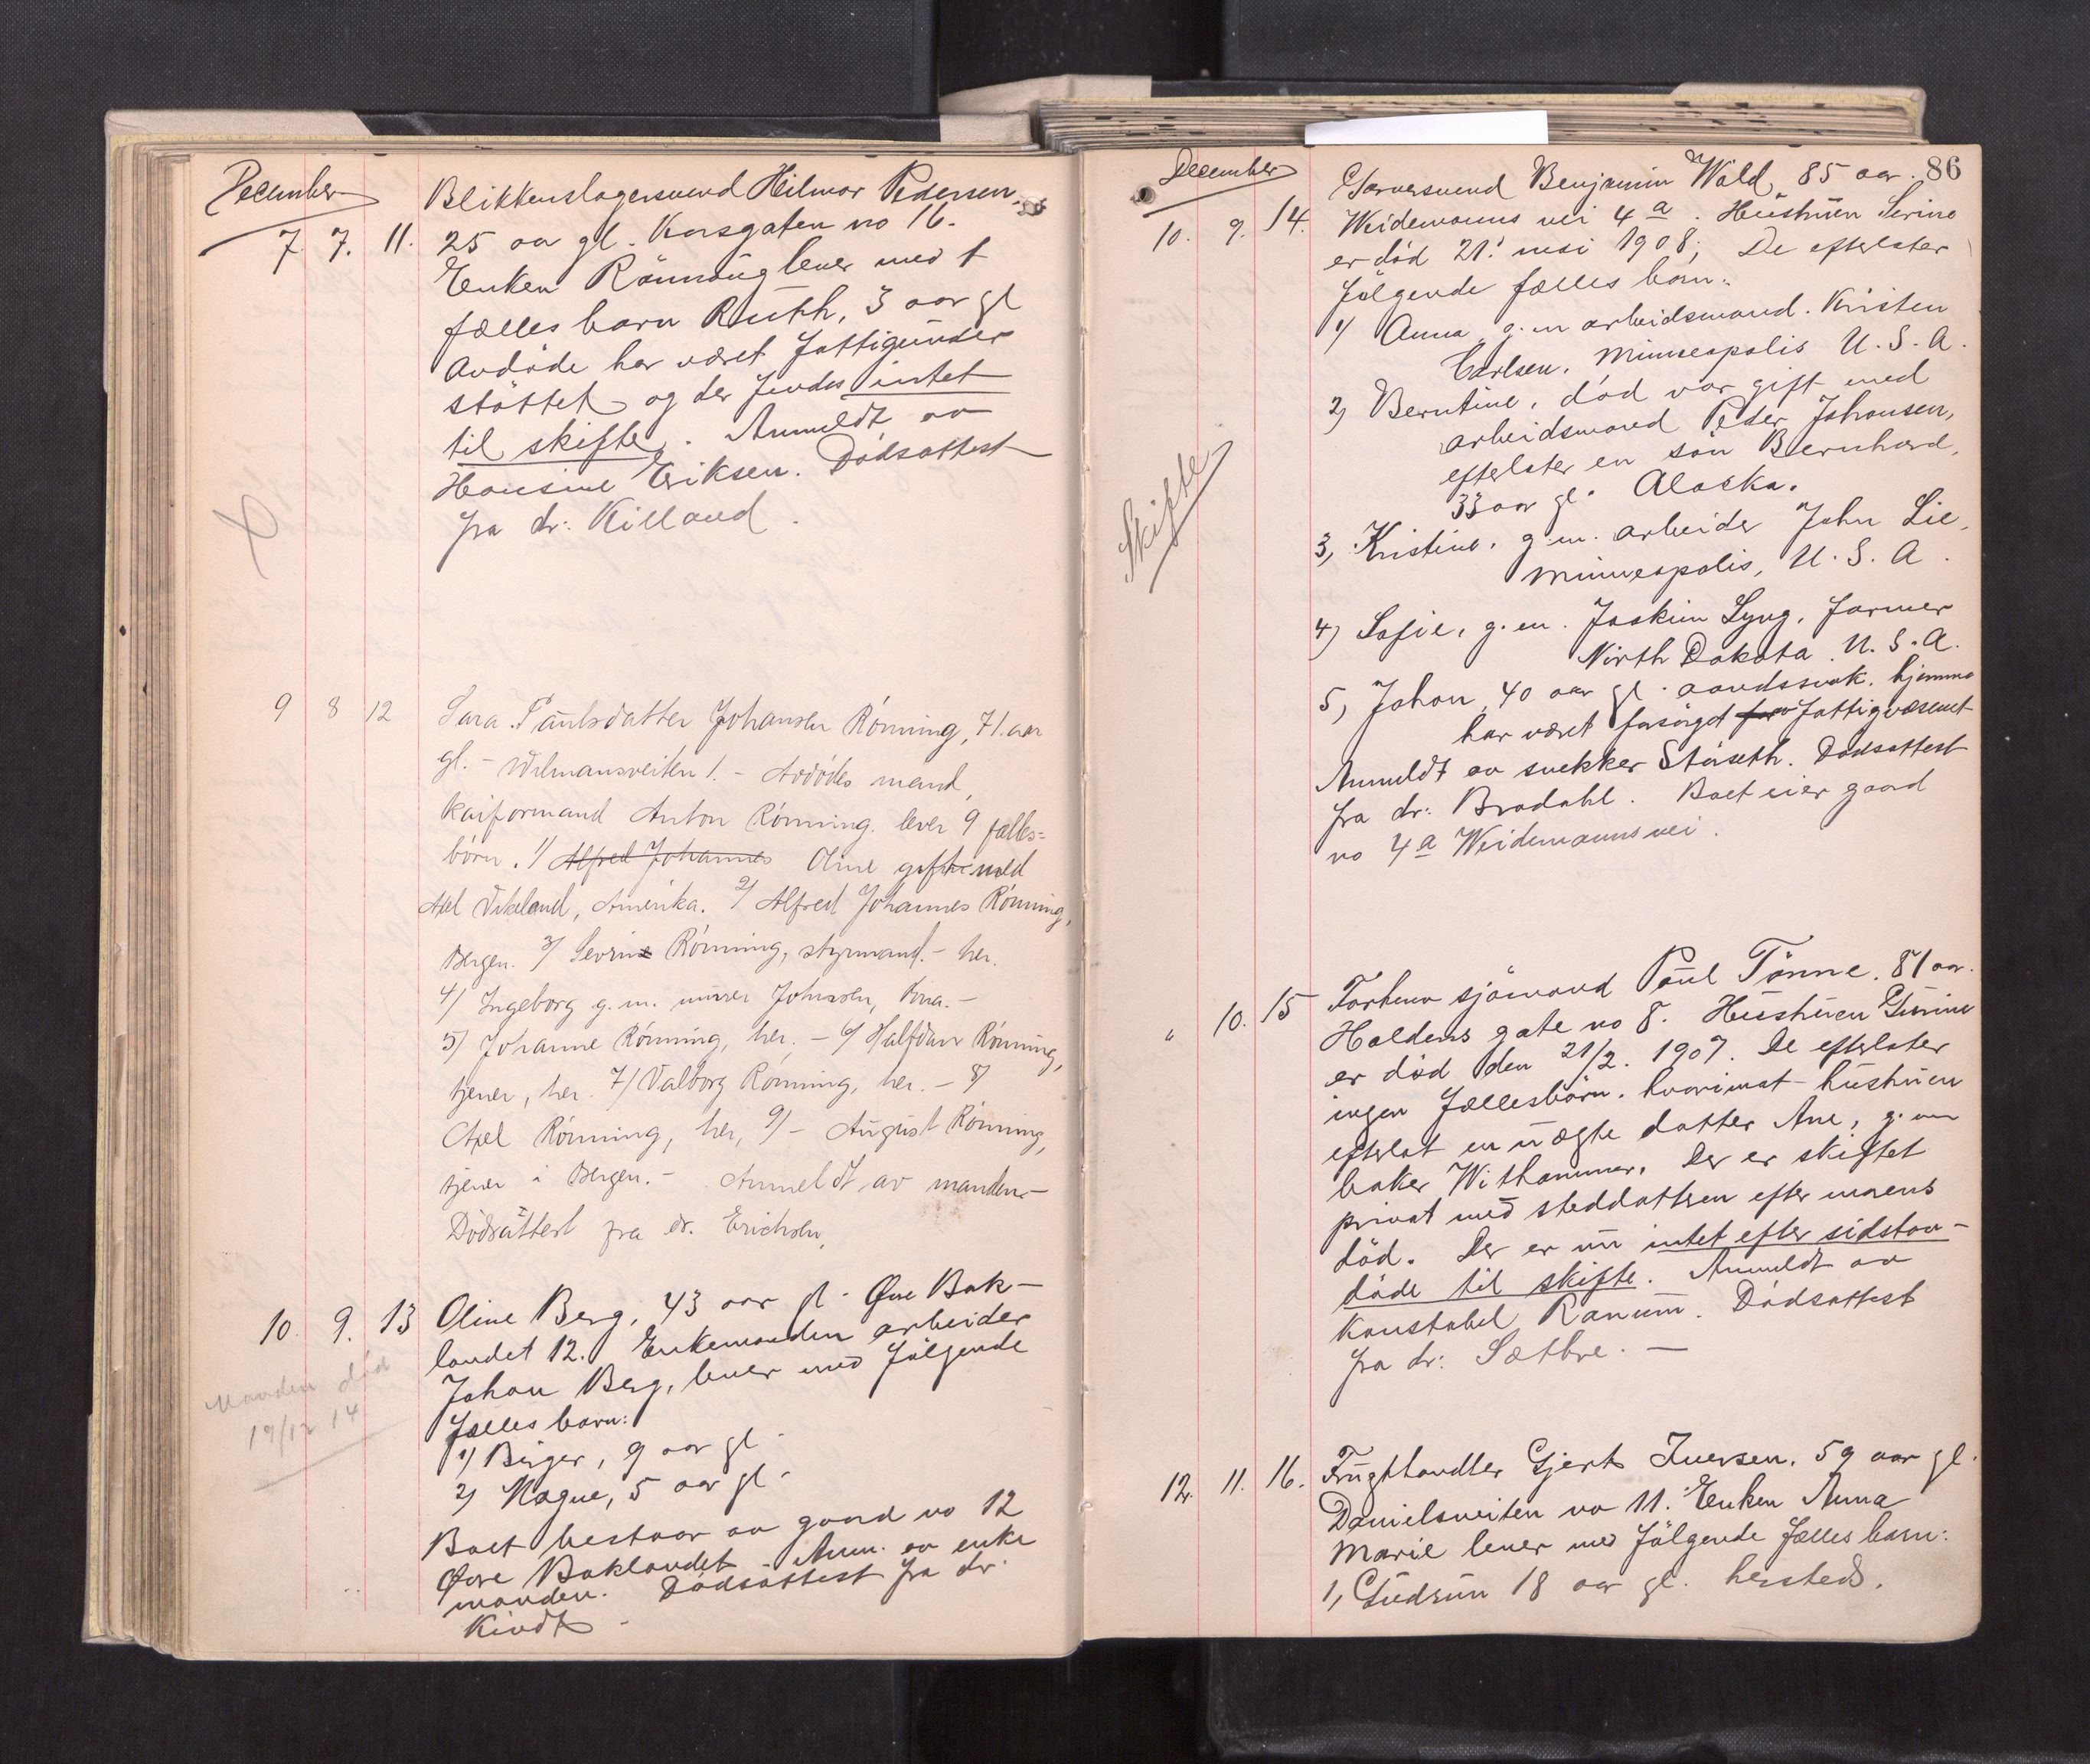 December
Blikkenslagersvend Hilmar Pedersen.
7. 7. 11. 25 aar gl. Korsgaten no 16.
Enken Rönnaug lever med 1
fælles barn Ruth, 3 aar gl
Avdöde har været fattigunder
stöttet og der findes intet
til skifte. Anmeldt av
Hansine Eriksen. Dödsattest
fra dr: Killand.
9 8 12 Sara Paulsdatter Johansen Rönning, 71 aar
gl. - Wilmansveiten 1. - Avdödes mand,
kaiformand Anton Rönning. lever 9 fælles=
börn. 1/ Alfred Johannes Oline gift med
Axel Amerika. 2/ Alfred Johannes Rönning,
Bergen. 3/ Severin Rönning, styrmand. - her.
4/ Ingeborg g. m. murer Johnsen,
5/ Johanne Rönning, her. - 6/ Halfdan Rönning,
tjener, her. 7/ Valborg Rönning, her. - 8/
Axel Rönning, her, 9/ - August Rönning,
tjener i Bergen. - Anmeldt av manden -
Dödsattest fra dr. Erichsen,
10. 9. 13 Oline Berg, 43 aar gl. Øvre Bak-
landet 12. Enkemanden arbeider
Johan Berg, lever med følgende
fælles barn:
Manden död
19/12 14
1) Birger, 9 aar gl.
2) Magne, 5 aar gl.
Boet bestaar av gaard no 12
Øvre Baklandet. Anm. av enke
manden. Dödsattest fra dr.
Kindt.
86
December
Garversvend Benjamin Wold, 85 aar.
10. 9. 14. Weidemanns vei 4a. Hustruen Serine
er död 21. mai 1908; De efterlater
følgende fælles barn:
1) Anna, g. m arbeidsmand. Kristen
Carlsen, Minneapolis U. S. A.
2) Berntine, död var gift med
arbeidsmand Peder Johansen,
efterlater en sön Bernhard,
33 aar gl. Alaska.
Skifte
3, Kristine, g. m. arbeider John Lie,
Minneapolis, U. S. A.
4) Sofie, g. m. Joakim Lyng, farmer
North Dakota. U. S. A.
5, Johan, 40 aar gl. aandssvak. hjemme
har været forsörget av fattigvæsenet
Anmeldt av snekker Störseth. Dödsattest
fra dr: Bradahl. Boet eier gaard
no 4a Weidemanns vei.
" 10. 15 Forhenv sjömand Paul Tönne. 81 aar.
Haldens gate no 8. Hustruen Gurine
er död den 21/2. 1907. De efterlater
ingen fællesbörn. hvorimot hustruen
efterlot en uægte datter Ane, g. m
baker Withammer. Der er skiftet
privat med steddatteren efter morens
död. Der er nu intet efter sidstav-
döde til skifte. Anmeldt av
Konstabel Ranum. Dödsattest
fra dr: Sæthre. -
12. 11. 16. Frugthandler Gjert Iversen. 59 aar gl.
Danielsveiten no 11. Enken Anna
Marie lever med følgende fælles barn:
1, Gudrun 18 aar gl. hersteds.